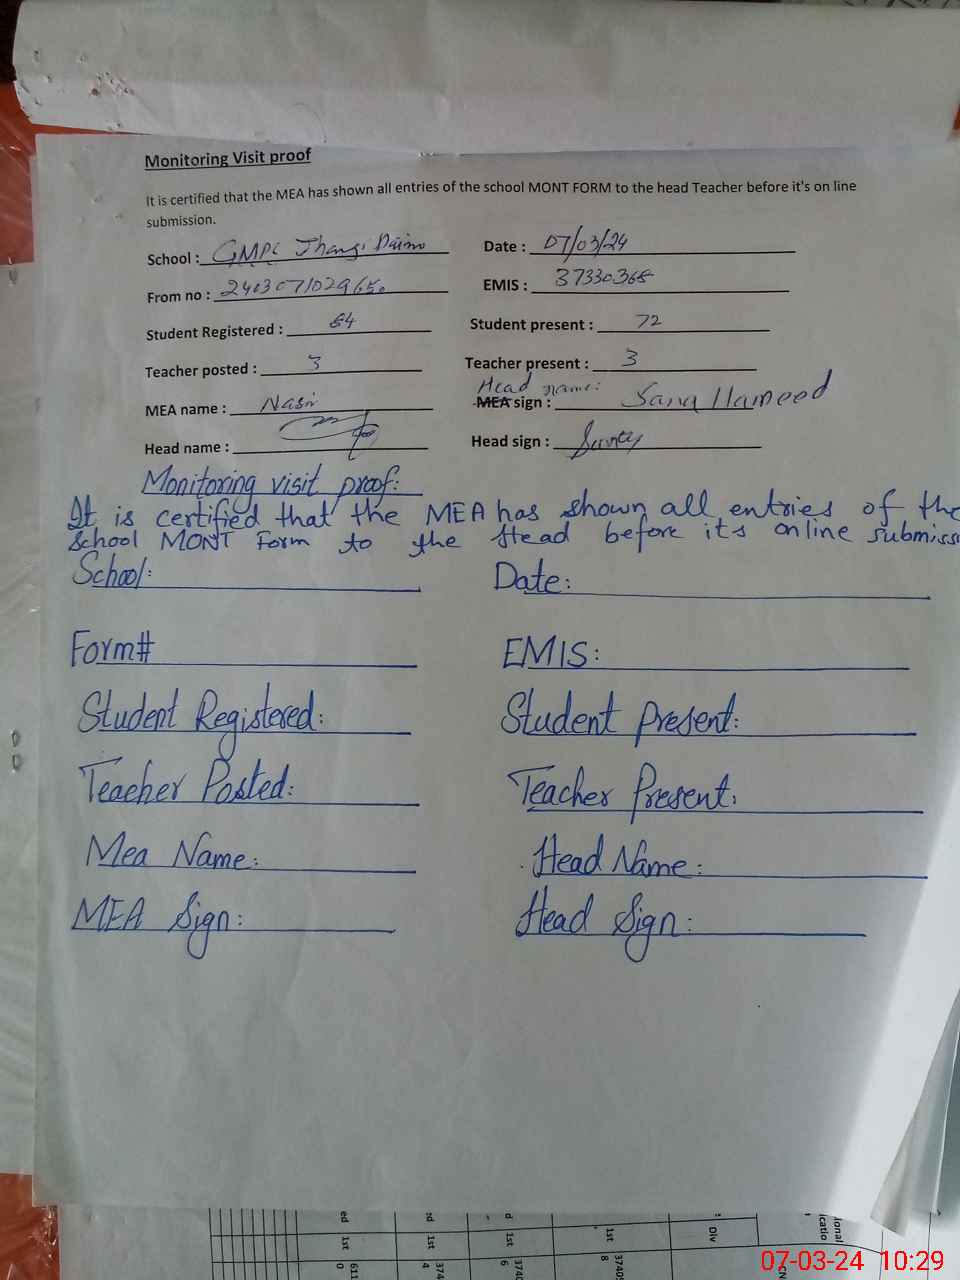 Monitoring Visit proof
It is certified that the MEA has shown all entries of the school MONT FORM to the head Teacher before it's on line
submission.
School : GMPS Jhangi Daim Date : 07/03/24
From no : 2403071029650 EMIS : 37330368
Student Registered : 84 Student present : 72
Teacher posted : 3 Teacher present : 3
Head name:
MEA name : Nasir MEA sign : Sana Hameed
Head name : Head sign :
Monitoring visit proof:
It is certified that the MEA has shown all entries of the
School MONT Form to the Head before its online submiss
School: Date:
Form# EMIS:
Student Registered: Student Present:
Teacher Posted: Teacher Present:
Mea Name: Head Name:
MEA Sign: Head Sign:
ed 1st 0 611
1st 4 374
1st 6 374
1st 8 3740
Div
07-03-24 10:29